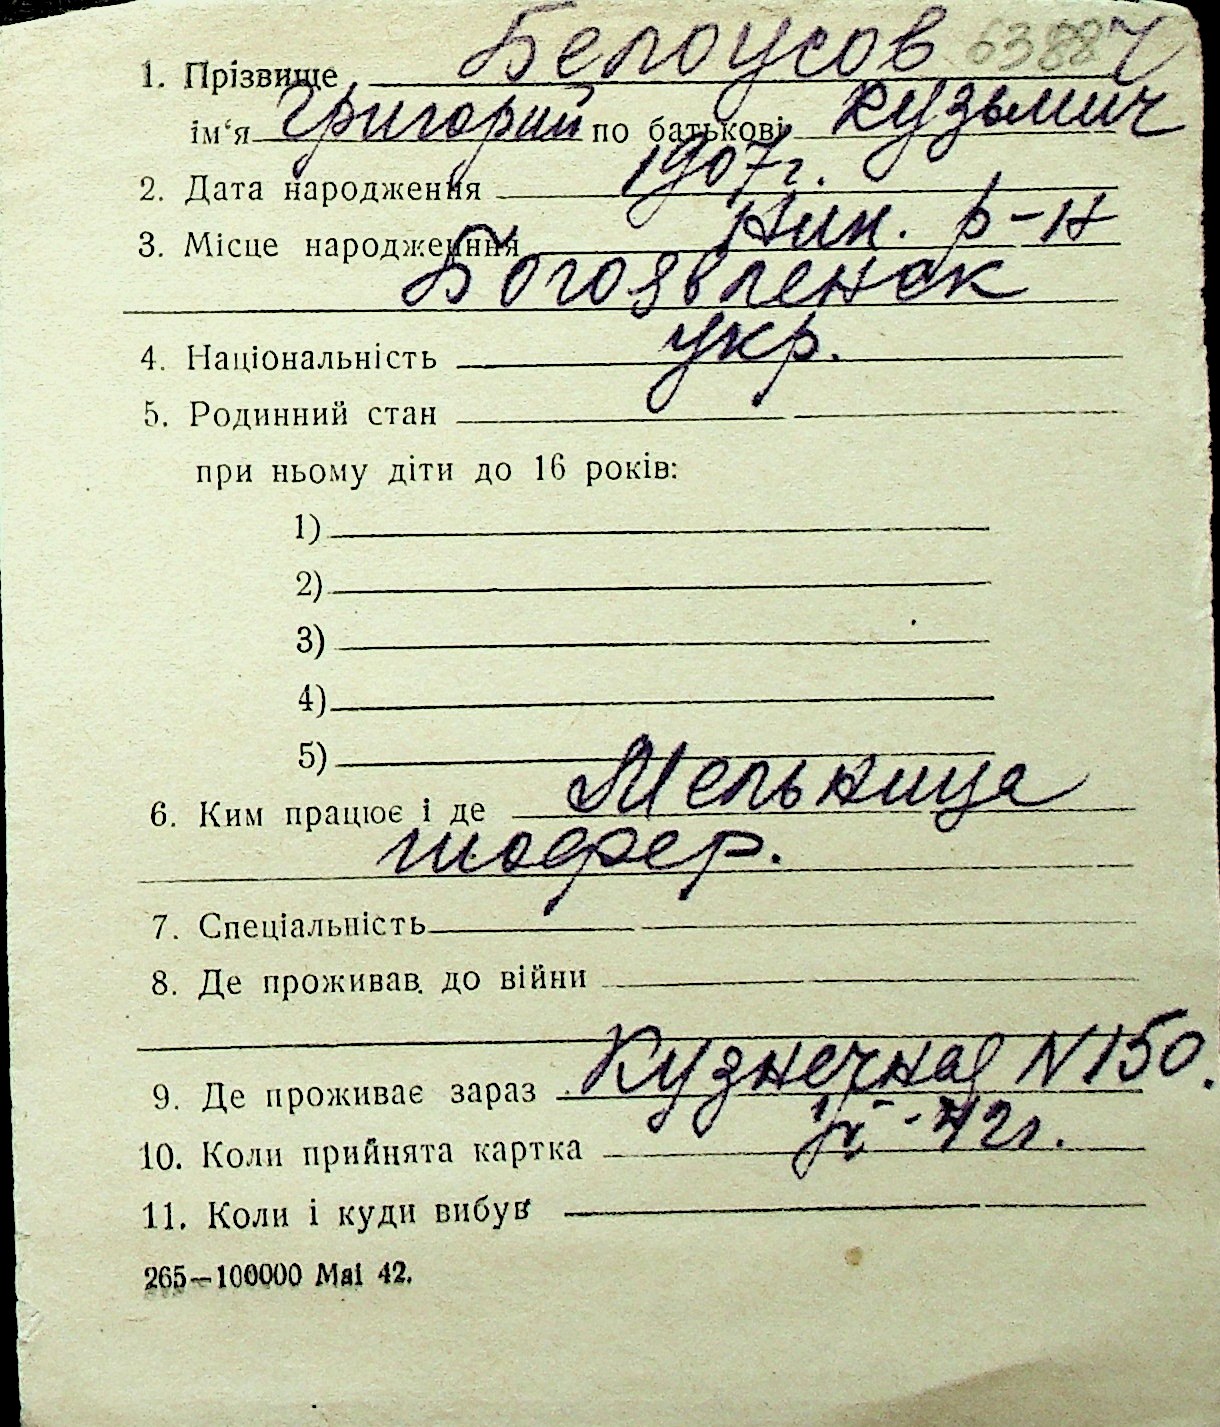 1. Прізвище Белоусов 6388
ім'я Григорий по батькові Кузьмич
2. Дата народження 1907г.
3. Місце народження Ник. р-н
Богоявленск
4. Національність укр.
5. Родинний стан
при ньому діти до 16 років:
1)
2)
3)
4)
5)
6. Ким працює і де Мельница
шофер.
7. Спеціальність
8. Де проживав до війни
9. Де проживає зараз Кузнечная N 150.
10. Коли прийнята картка -42г.
11. Коли і куди вибув
265—100000 Mai 42.